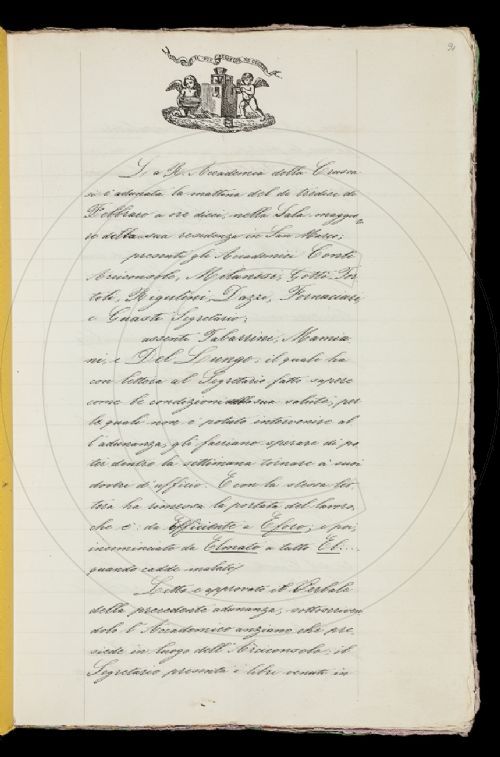 La R. Accademia della Crusca
si è adunata la mattina del dì tredici di
Febbraro a ore dieci, nella Sala maggio-
re della sua residenza in San Marco;
presenti gli Accademici Conti
Arciconsolo, Milanesi, Gotti, Tor-
toli, Rigutini, Dazzi, Fornaciari,
e Guasti Segretario;
assenti Tabarrini, Mamia-
ni, e Del Lungo; il quale ha
con lettera al Segretario fatto sapere
come le condizioni della sua salute, per
le quali non è potuto intervenire al-
l'adunanza, gli facciano sperare di po-
ter dentro la settimana tornare a' suoi
doveri d'ufficio. E con la stessa let-
tera ha rimessa la portata del lavoro,
che è da Efficiente a Eforo; e poi,
incominciato da Elmato a tutto El....
quando cadde malato.
Letto e approvato il Verbale
della precedente adunanza, sottoscriven-
dolo l'Accademico anziano che pre-
siede in luogo dell'Arciconsolo; il
Segretario presenta i libri venuti in